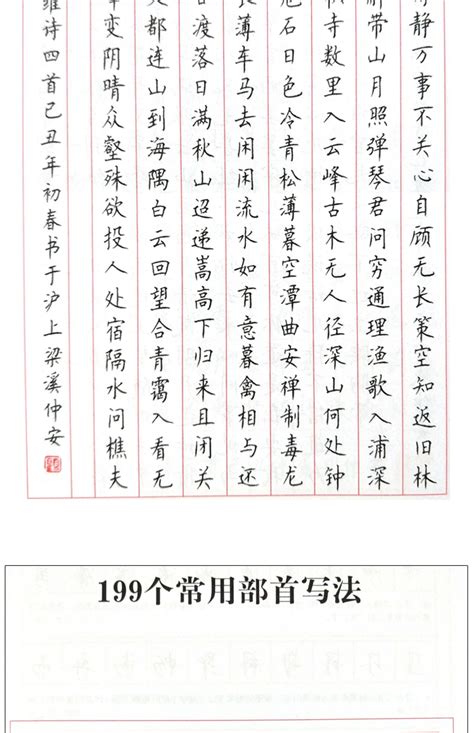 静万事不关心自顾无长策空知返旧林
带山月照弹琴君问穷通理渔歌入浦深
寺数里入云峰古木无人径深山何处钟
石日色冷青松薄暮空潭曲安禅制毒龙
薄车马去闲闲流水如有意暮禽相与还
渡落日满秋山迢递嵩高下归来且闭关
都连山到海隅白云回望合青霭入看无
变阴晴众壑殊欲投人处宿隔水问樵夫
维诗四首己丑年初春书于沪上梁溪仲安
199个常用部首写法